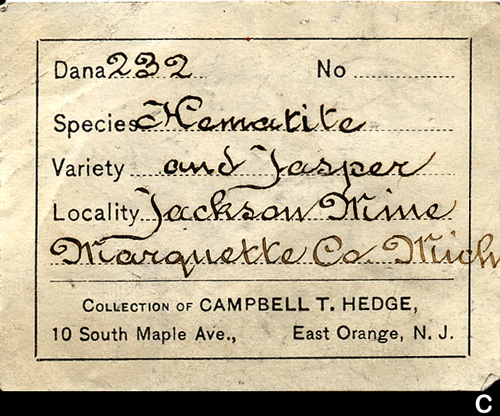 Dana 232 No
Species Hematite
Variety and Jasper
Locality Jackson Mine
Marquette Co. Mich
COLLECTION OF CAMPBELL T. HEDGE,
10 South Maple Ave., East Orange, N. J.
C